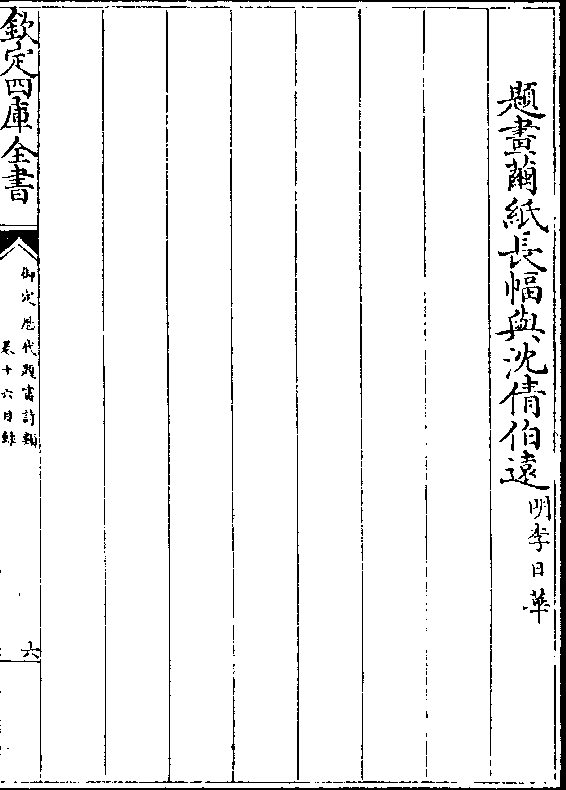 題畫繭紙長幅與沈倩伯遠明李日華
欽定四庫全書
御定歷代題畫詩類
卷十六目錄
六